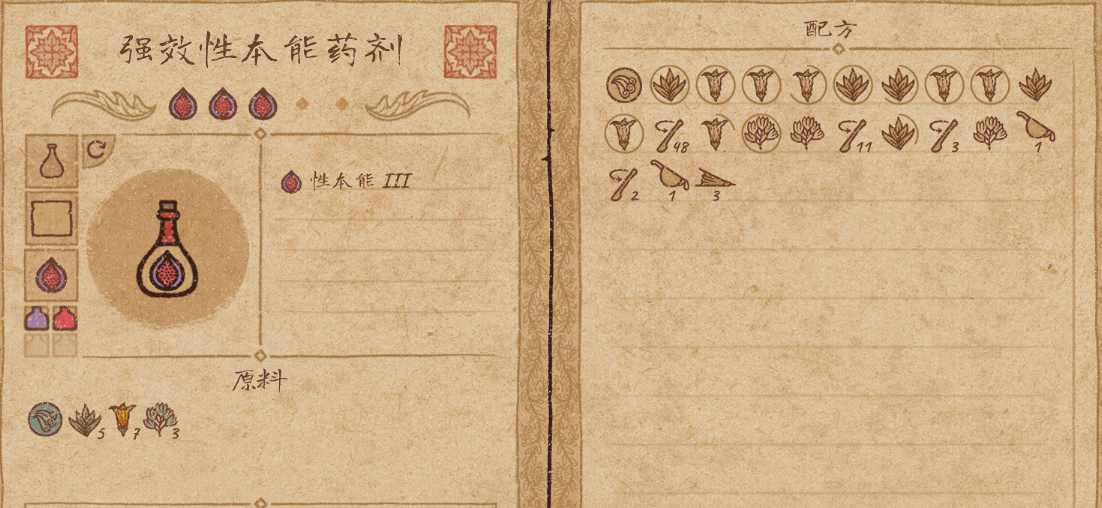 强效性本能药剂
性本能 III
原料
5 7 3
配方
48 11 3 1
2 1 3